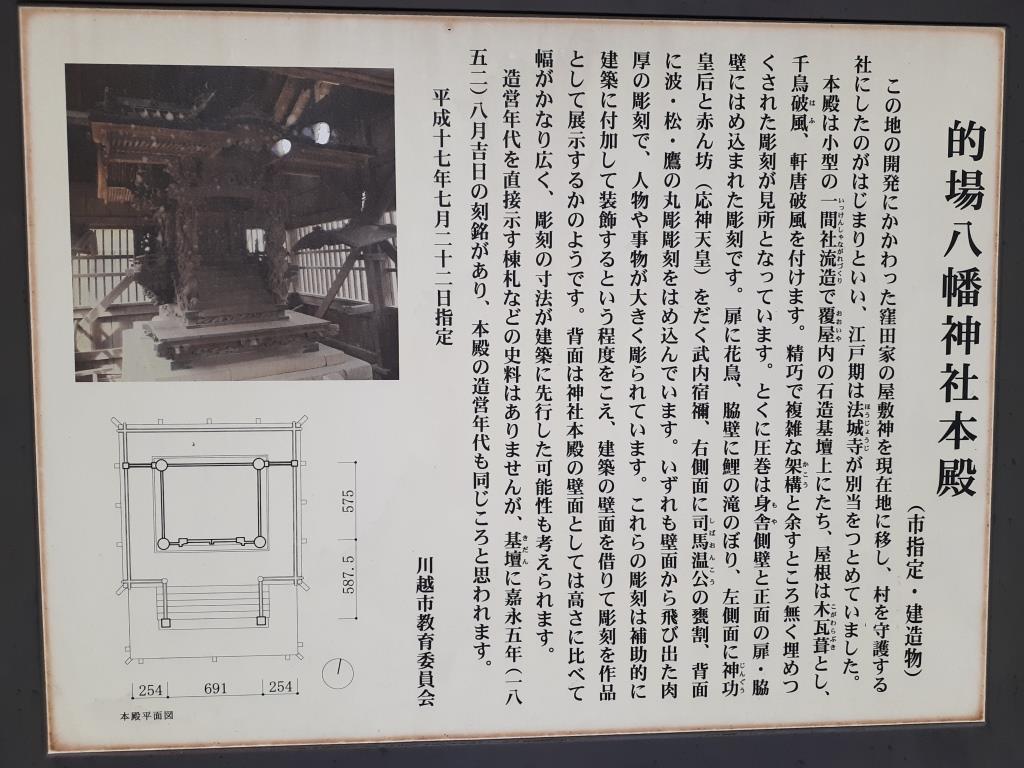 的場八幡神社本殿
（市指定・建造物）
この地の開発にかかわった窪田家の屋敷神を現在地に移し、村を守護する
社にしたのがはじまりといい、江戸期は法城寺が別当をつとめていました。
本殿は小型の一間社流造で覆屋内の石造基壇上にたち、屋根は木瓦葺とし、
千鳥破風、軒唐破風を付けます。精巧で複雑な架構と余すところ無く埋めつ
くされた彫刻が見所となっています。とくに圧巻は身舎側壁と正面の扉・脇
壁にはめ込まれた彫刻です。扉に花鳥、脇壁に鯉の滝のぼり、左側面に神功
皇后と赤ん坊（応神天皇）をだく武内宿禰、右側面に司馬温公の甕割、背面
に波・松・鷹の丸彫彫刻をはめ込んでいます。いずれも壁面から飛び出た肉
厚の彫刻で、人物や事物が大きく彫られています。これらの彫刻は補助的に
建築に付加して装飾するという程度をこえ、建築の壁面を借りて彫刻を作品
として展示するかのようです。背面は神社本殿の壁面としては高さに比べて
幅がかなり広く、彫刻の寸法が建築に先行した可能性も考えられます。
造営年代を直接示す棟札などの史料はありませんが、基壇に嘉永五年（一八
五二）八月吉日の刻銘があり、本殿の造営年代も同じころと思われます。
平成十七年七月二十二日指定
川越市教育委員会
575
587.5
254 691 254
本殿平面図